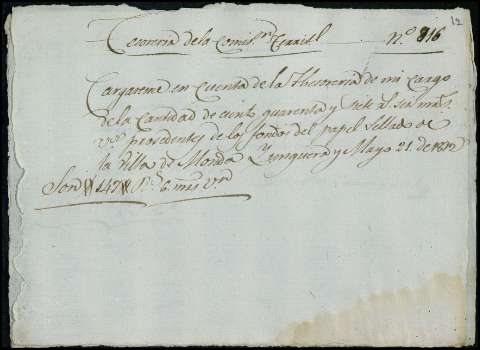 12
Tesoreria de la Comis.ⁿ Territ.l Nº 816
Cargareme en Cuenta de la Thesoreria de mi cargo
de la Cantidad de ciento quarenta y siete r.s seis mrs.
v.n prosedentes de los fondos del papel Sellado de
la Villa de Monda Yunquera y Mayo 21. de 1812
Son # 147 # r.s 6 mrs v.n